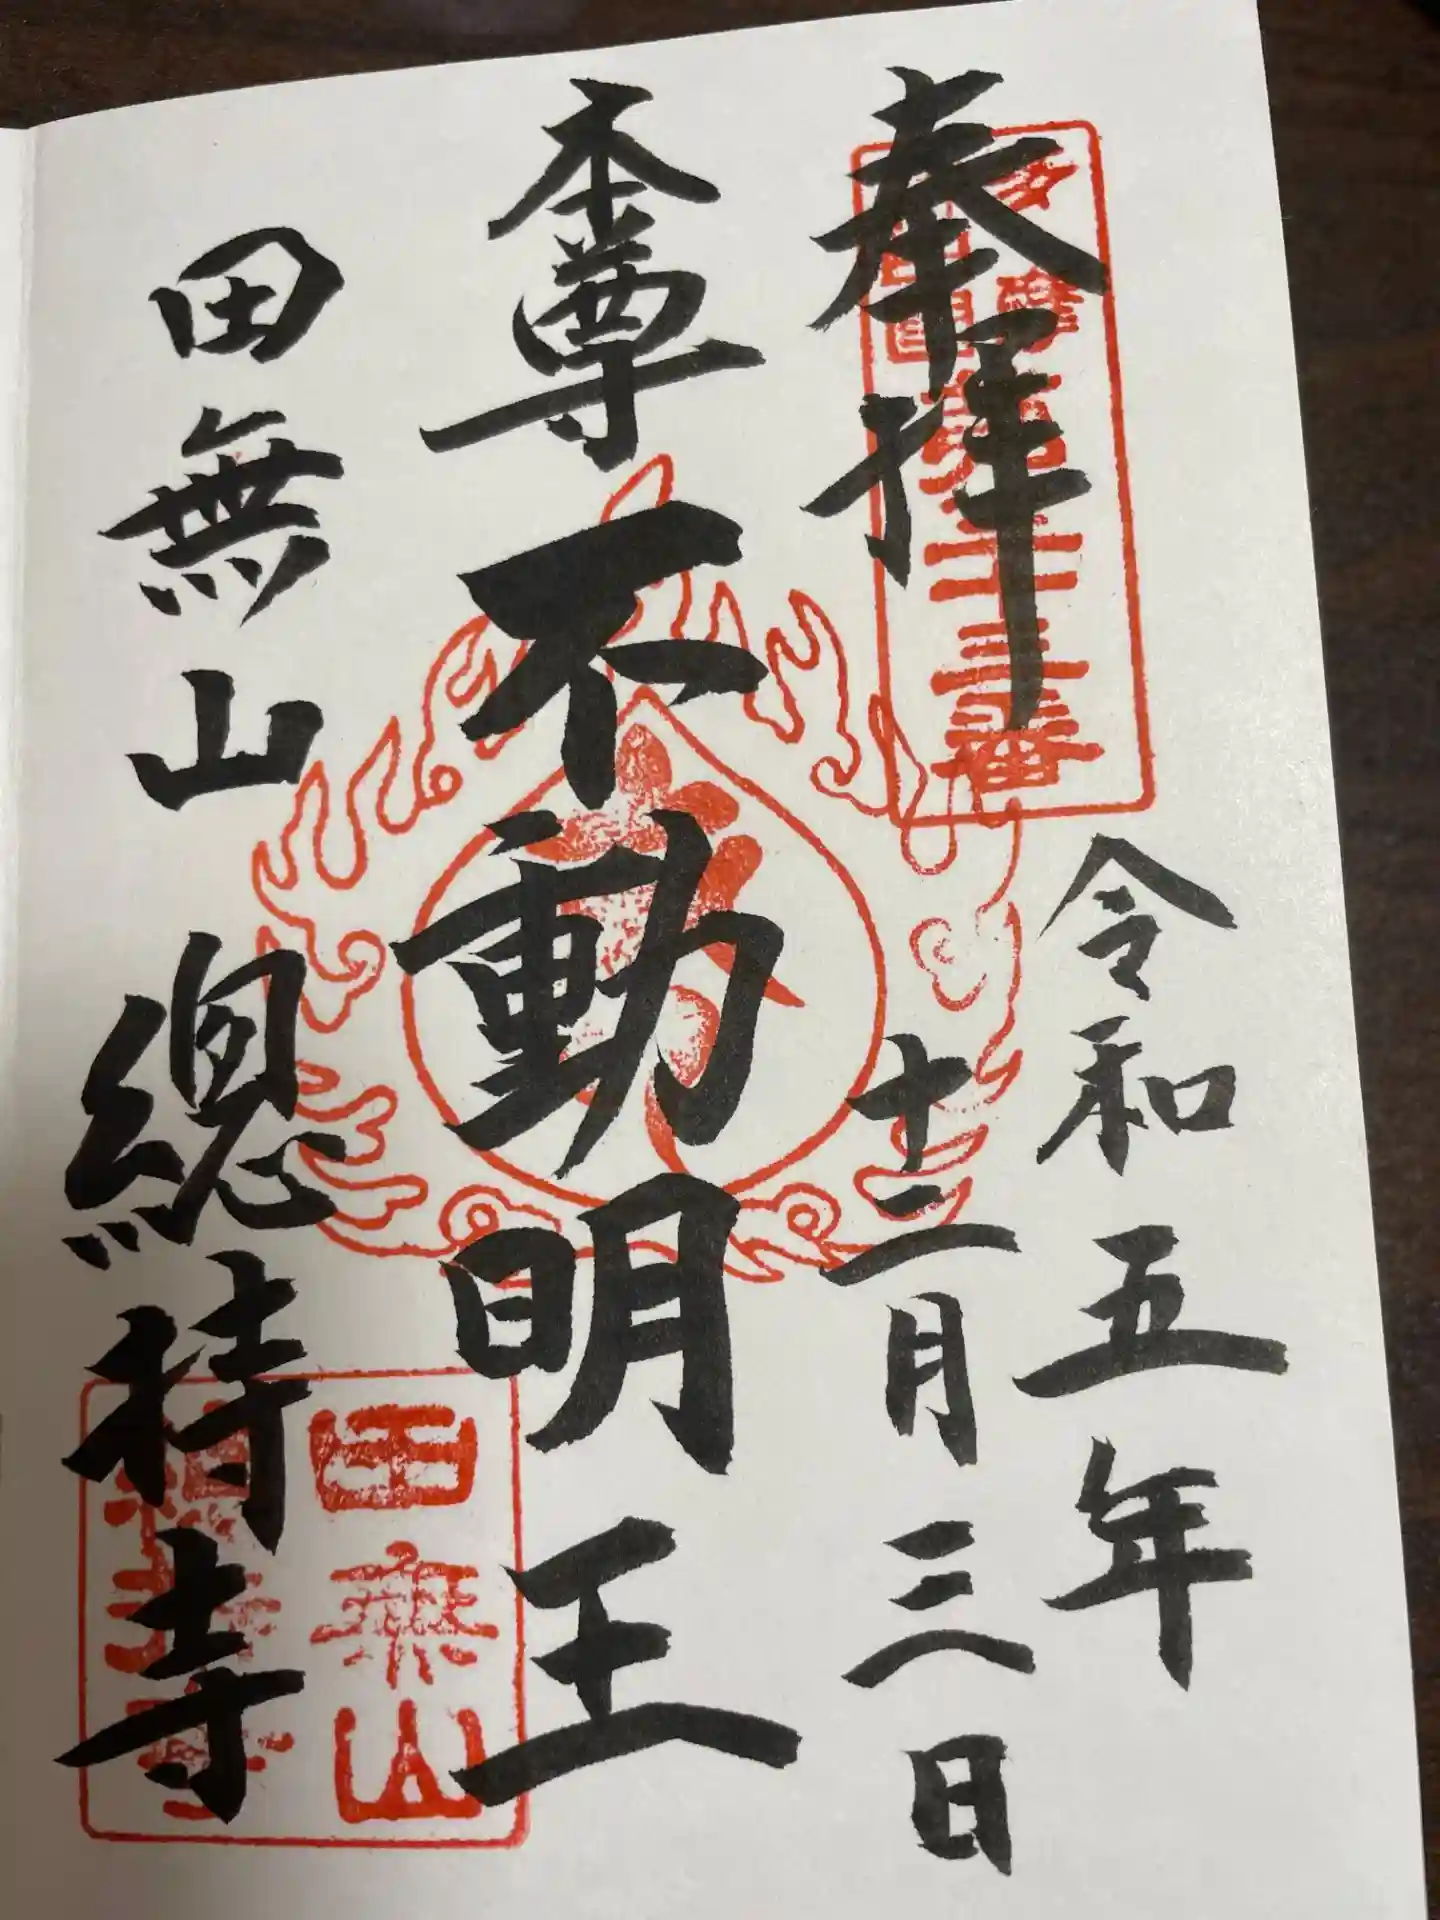 奉拝
令和五年
十二月三日
本尊不動明王
田無山 總持寺
第三十三番
田無山